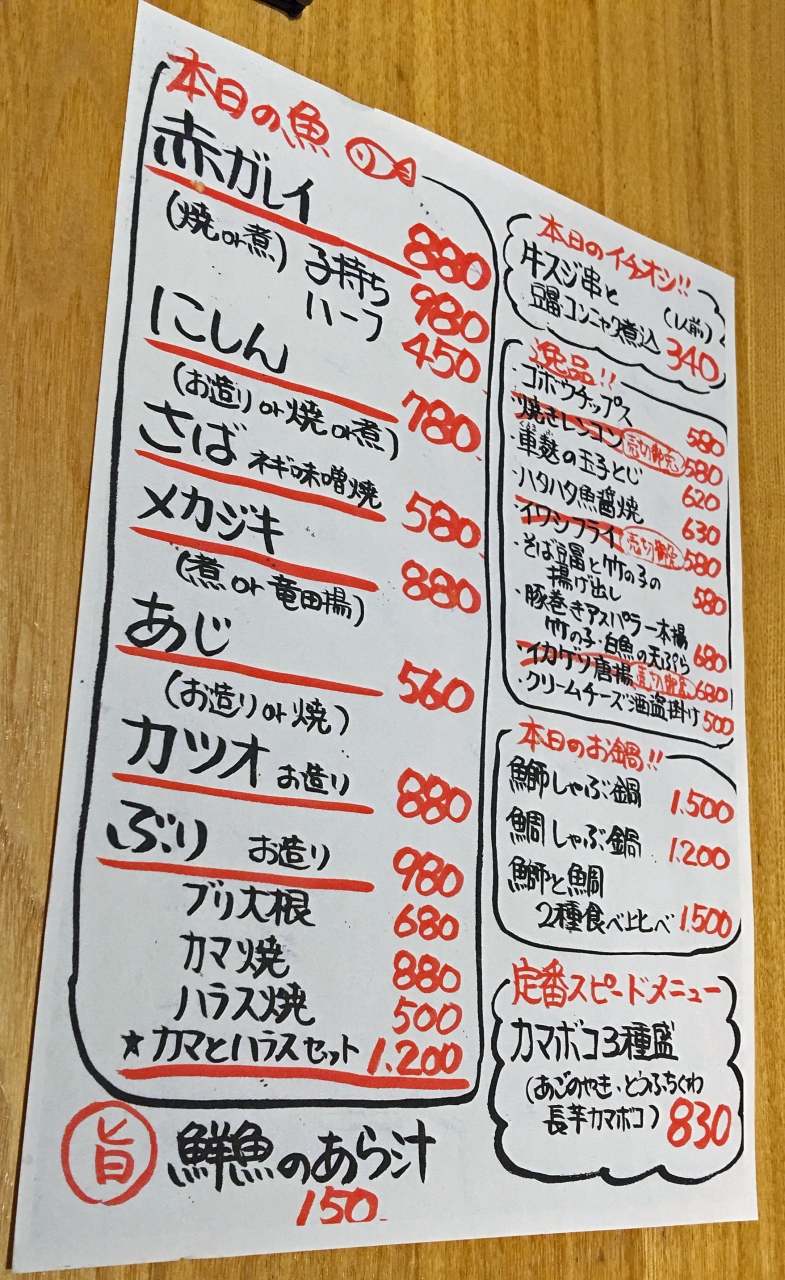 本日の魚
赤ガレイ 880
(焼or煮) 子持ち 980
ハーフ 450
にしん 780
(お造りor焼or煮)
さば ネギ味噌焼 580
メカジキ 880
(煮or竜田揚)
あじ 560
(お造りor焼)
カツオ お造り 880
ぶり お造り 980
ブリ大根 680
カマ焼 880
ハラス焼 500
★カマとハラスセット 1.200
旨 鮮魚のあら汁
150
本日のイチオシ!!
牛スジ串と
豆冨コンニャク煮込 (1人前) 340
逸品!!
・ゴボウチップス 580
・焼きレンコン 売切御免 580
・車麩の玉子とじ 620
・ハタハタ魚醤焼 630
・イワシフライ 売切御免 580
・そば豆冨と竹の子の
揚げ出し 580
・豚巻きアスパラー本揚
竹の子・白魚の天ぷら 680
・イカゲソ唐揚 売切御免 680
・クリームチーズ酒盗掛け 500
本日のお鍋!!
鰤しゃぶ鍋 1.500
鯛しゃぶ鍋 1.200
鰤と鯛
2種食べ比べ 1.500
定番スピードメニュー
カマボコ3種盛
(あごのやき・とうふちくわ
長芋カマボコ) 830